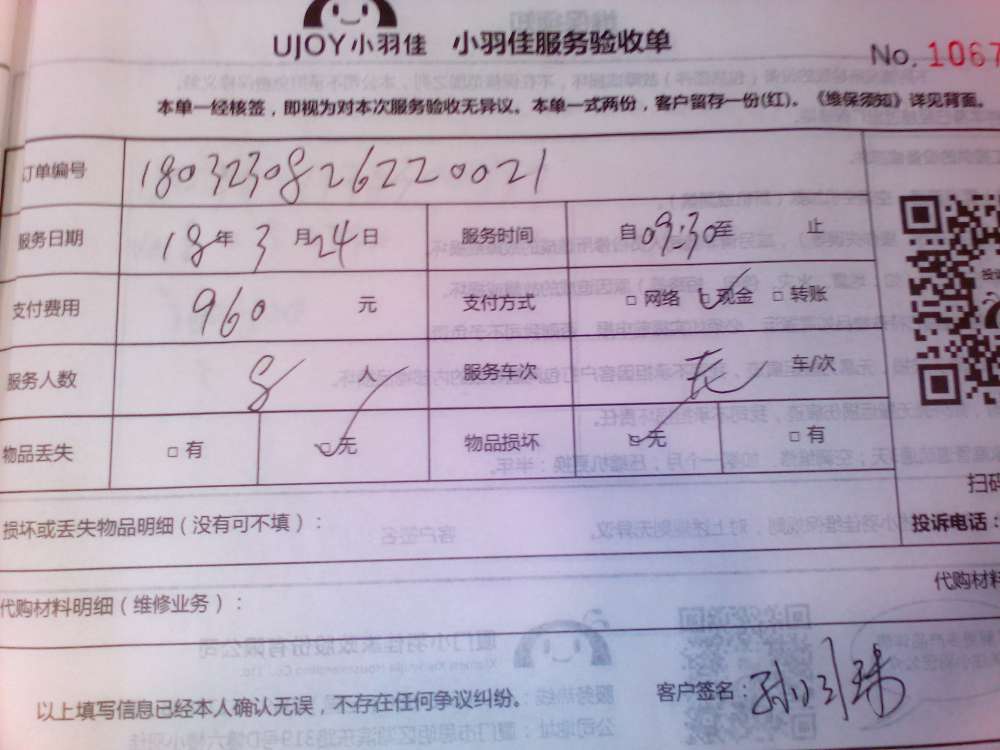 UJOY小羽佳 小羽佳服务验收单
No. 1067
本单一经核签，即视为对本次服务验收无异议。本单一式两份，客户留存一份(红)。《维保须知》详见背面。
订单编号 1803230826220021
服务日期 18年3月24日 服务时间 自09:30至 止
支付费用 960 元 支付方式 □网络 □现金 □转账
服务人数 8 人 服务车次 无 车/次
物品丢失 □有 □无 物品损坏 □无 □有
扫码
损坏或丢失物品明细（没有可不填）：
投诉电话：
代购材料明细（维修业务）：
代购材料
以上填写信息已经本人确认无误，不存在任何争议纠纷。 客户签名：